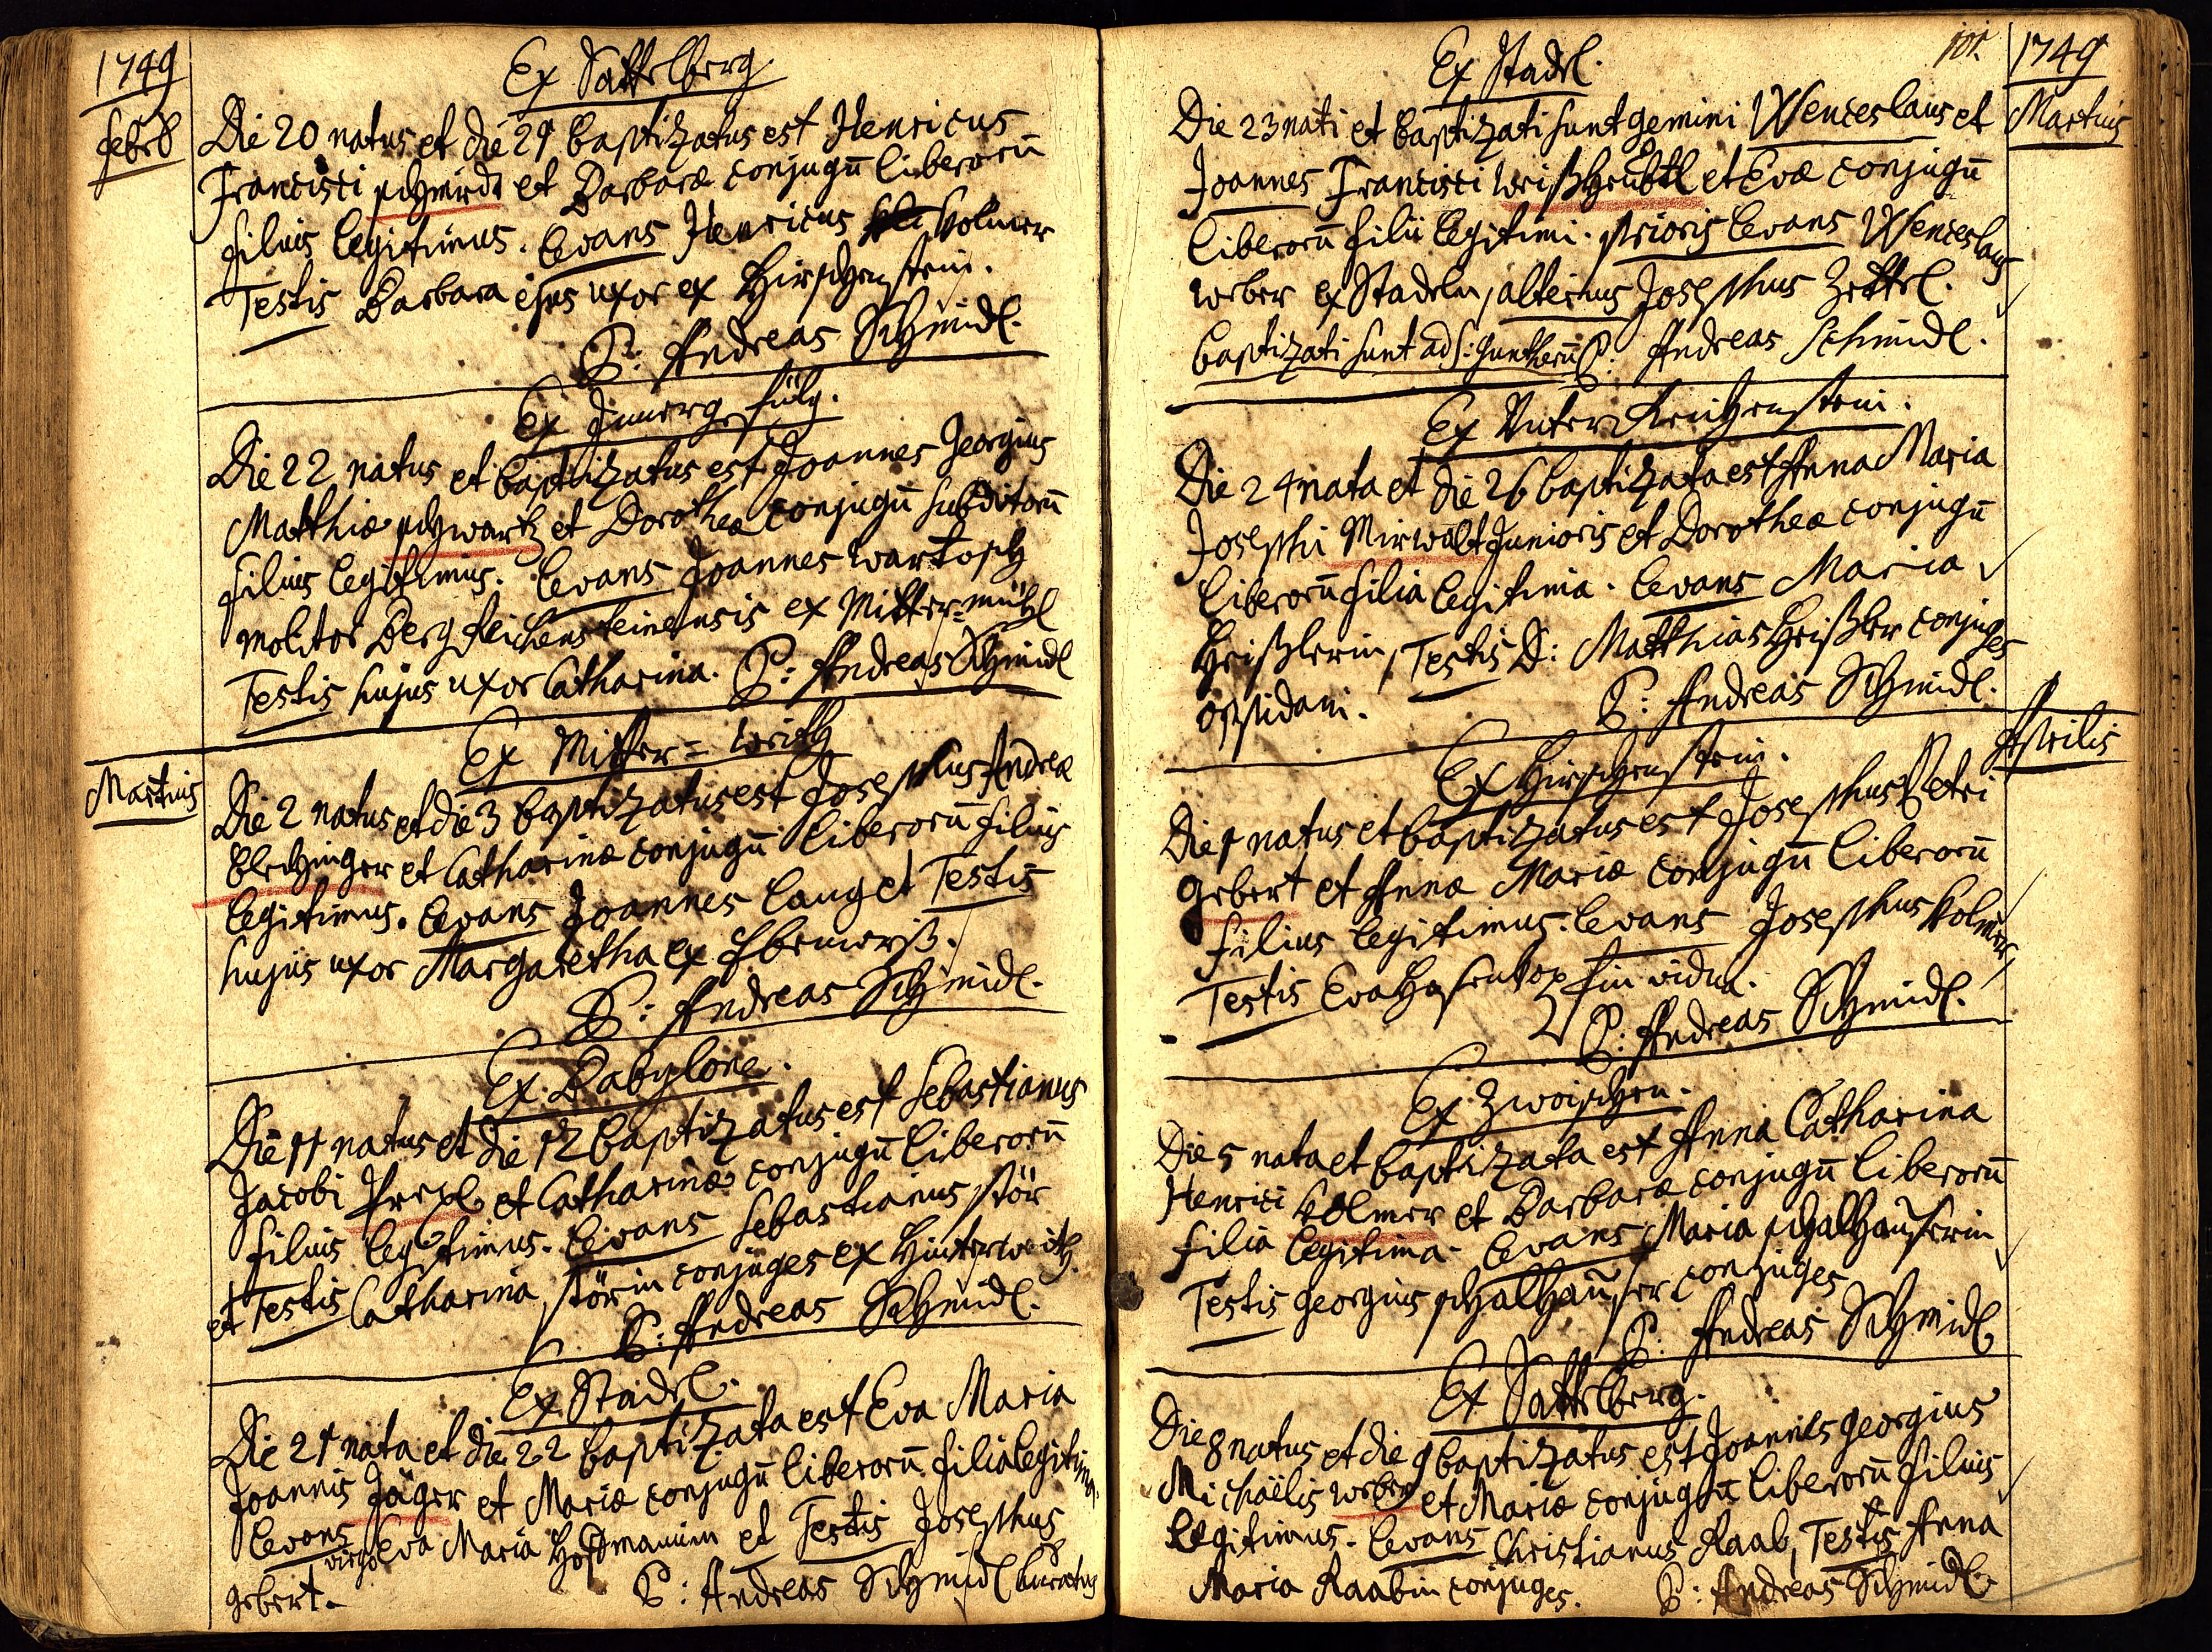 1749
Febr
Ex Sattelberg.
Die 20 natus et die 21 baptizatus est Henricus
Francisci schmidt et Barbaræ conjugū liberorū
filius legitimus. Levans Henricus Kolmer
Testis Barbara ejus uxor ex Hirschenstein.
P: Andreas Schmidl.
Ex Innergefülg.
Die 22 natus et baptizatus est Joannes Georgius
Matthiæ schwartz et Dorotheæ conjugū subditorū
filius legitimus. Levans Joannes Wartosch
molitor Bergreichensteinensis ex Mitter=mühl
Testis hujus uxor Catharina. P: Andreas Schmidl
Martius
Ex Mitter=weith
Die 2 natus et die 3 baptizatus est Josephus Andreæ
Blechinger et Catharinæ conjugū liberorū filius
legitimus. Levans Joannes Lang et Testis
hujus uxor Margaretha ex
P: Andreas Schmidl.
Ex Babylone.
Die 11 natus et die 12 baptizatus est Sebastianus
Jacobi et Catharinæ conjugū liberorū
filius legitimus. Levans Sebastianus stör
et Testis Catharina störin conjuges ex Hinterweith.
P: Andreas Schmidl.
Ex Stadl.
Die 21 nata et die 22 baptizata est Eva Maria
Joannis Jäger et Mariæ conjugū liberorū filia legitima.
Levans virgo Eva Maria Hoffmanin et Testis Josephus
gebert. P: Andreas Schmidl Curatus
101.
1749
Martius
Ex Stadl.
Die 23 nati et baptizati sunt gemini Wenceslaus et
Joannes Francisci weißheübtl et Evæ conjugū
liberorū filii legitimi. prioris levans Wenceslaus
weber ex Stadeln, alterius Josephus Zettl.
baptizati sunt ad S: Guntherū P: Andreas Schmidl.
Ex Unter Reichenstein.
Die 24 nata et die 26 baptizata est Anna Maria
Josephi Mirwalt Junioris et Dorotheæ conjugū
liberorū filia legitima. Levans Maria
Heißlerin, Testis D: Matthias Heißler conjuges
oppidani. P: Andreas Schmidl.
Aprilis
Ex Hirschenstein.
Die 1 natus et baptizatus est Josephus Petri
Gebert et Annæ Mariæ conjugū liberorū
filius legitimus. Levans Josephus Kolmer,
Testis Eva Hasenkopfin vidua.
P: Andreas Schmidl.
Ex Zwoischen.
Die 5 nata et baptizata est Anna Catharina
Henrici Kolmer et Barbaræ conjugū liberorū
filia legitima. Levans Maria schalhauserin
Testis georgius schalhauser conjuges
P: Andreas Schmidl
Ex Sattelberg.
Die 8 natus et die 9 baptizatus est Joannes georgius
Michaëlis weber et Mariæ conjugū liberorū filius
legitimus. Levans Christianus Raab, Testis Anna
Maria Raabin conjuges. P: Andreas Schmidl